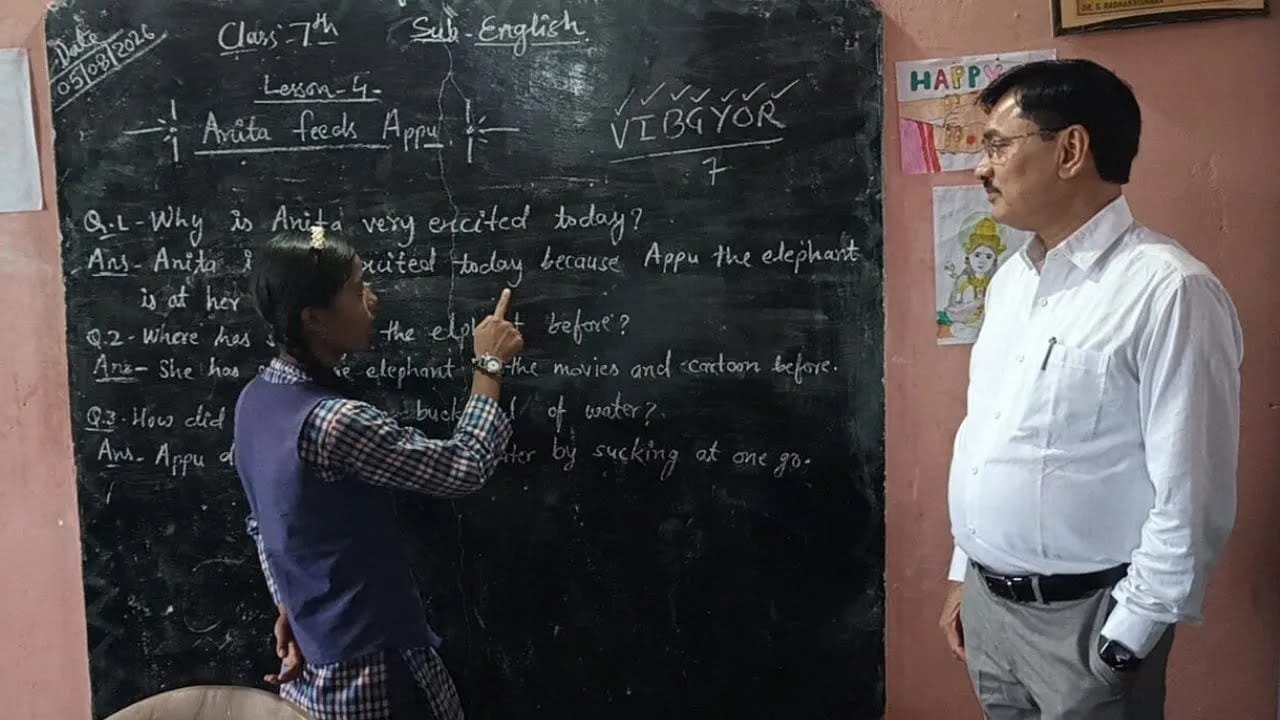 Date
05/08/2026
Class-7th Sub-English.
Lesson-4-
Anita feeds Appu
VIBGYOR
7
Q.1-Why is Anita very excited today?
Ans-Anita excited today because Appu the elephant
is at her
Q.2-Where has the before?
Ans-She has elephant the movies and cartoon before.
Q.3-How did of water?
Ans-Appu by sucking at one go.
HAPPY
DR. S. RADHAKRISHNAN